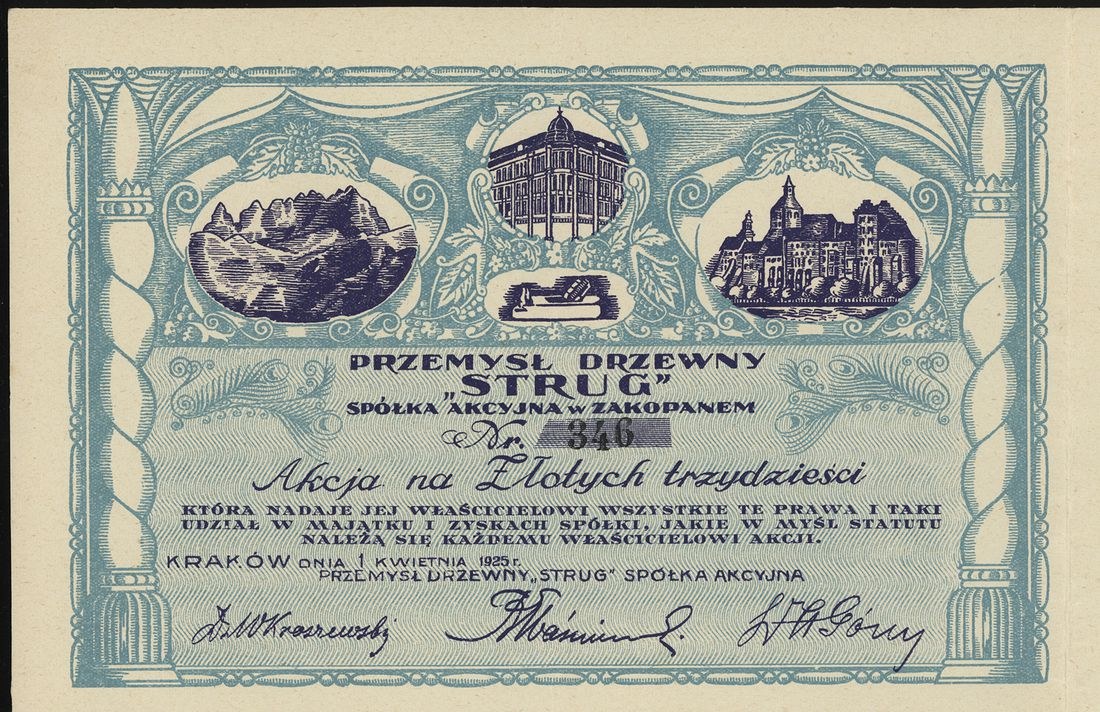 PRZEMYSŁ DRZEWNY
„STRUG”
SPÓŁKA AKCYJNA W ZAKOPANEM
Nr. 346
Akcja na Złotych trzydzieści
KTÓRA NADAJE JEJ WŁAŚCICIELOWI WSZYSTKIE TE PRAWA I TAKI
UDZIAŁ W MAJĄTKU I ZYSKACH SPÓŁKI, JAKIE W MYŚL STATUTU
NALEŻĄ SIĘ KAŻDEMU WŁAŚCICIELOWI AKCJI.
KRAKÓW DNIA 1 KWIETNIA 1925 r.
PRZEMYSŁ DRZEWNY „STRUG” SPÓŁKA AKCYJNA
Kraszewski Górny